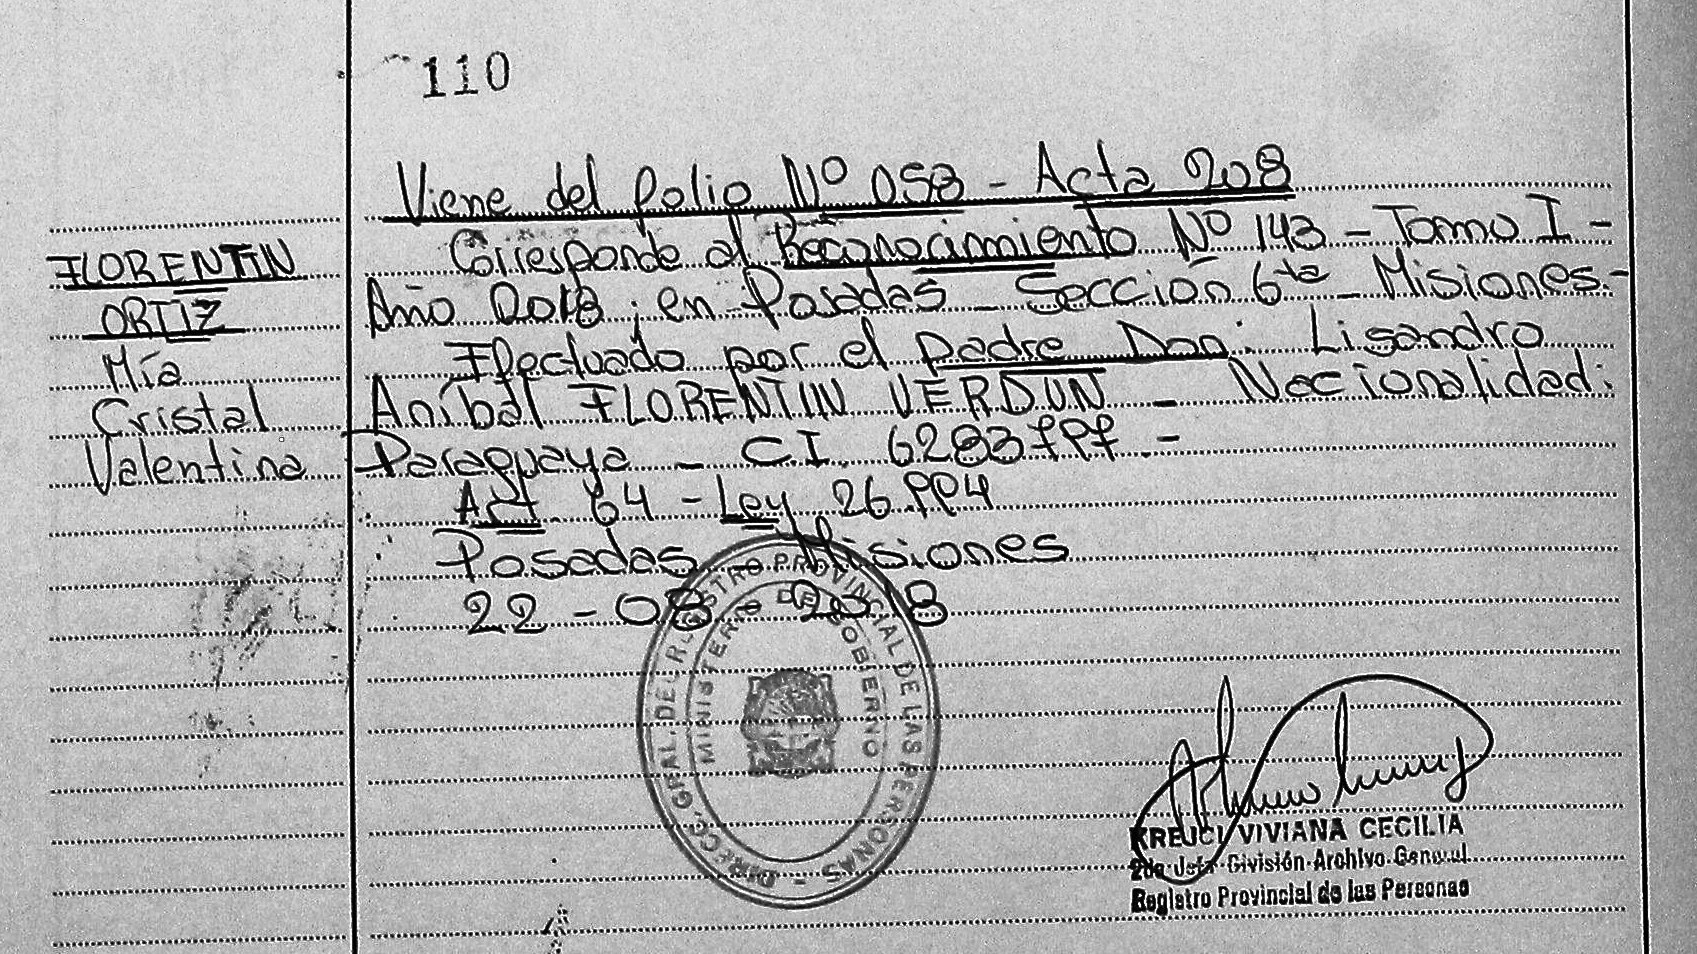 110
Viene del folio Nº 058 - Acta 208
FLORENTIN
ORTIZ
Mía
Cristal
Valentina
Corresponde al Reconocimiento Nº 143 - Tomo I -
Año 2018; en Posadas - Sección 6ta - Misiones -
Efectuado por el padre Don: Lisandro
Aníbal FLORENTIN VERDUN - Nacionalidad:
Paraguaya - C.I. 6283797 -
Art 64 - Ley 26.994
Posadas - Misiones
22-08-2018
DIRECC. GRAL. DEL REGISTRO PROVINCIAL DE LAS PERSONAS -
MINISTERIO DE GOBIERNO
KREJCI VIVIANA CECILIA
2da Jefa División Archivo General
Registro Provincial de las Personas